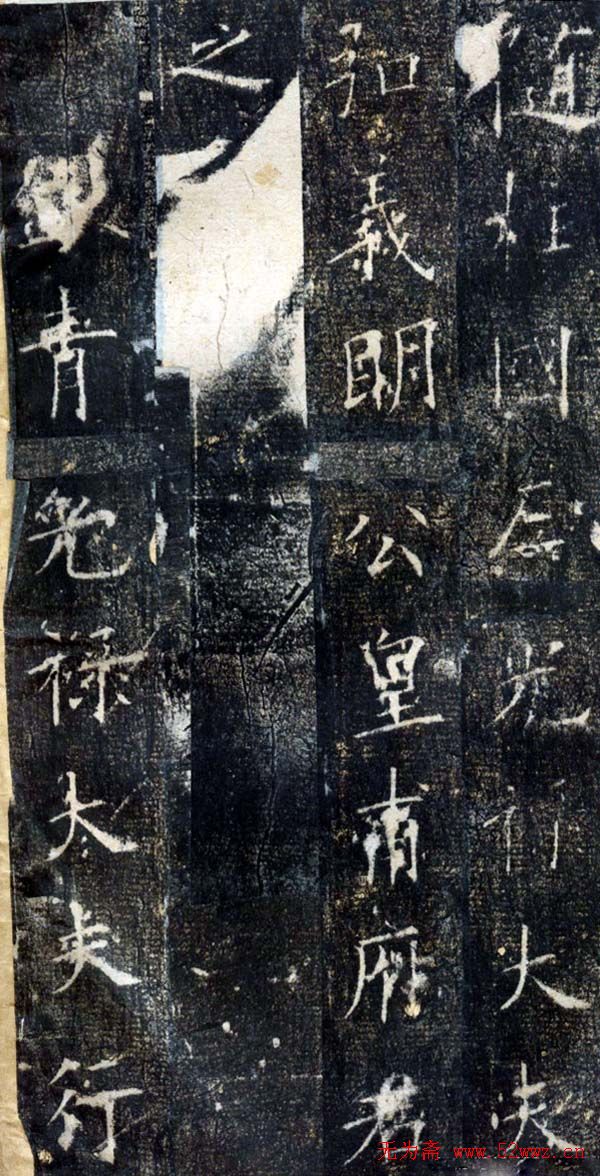 隨柱國左光祿大夫
弘義明公皇甫府君
之
銀青光祿大夫行
无为斋 www.52wwz.cn